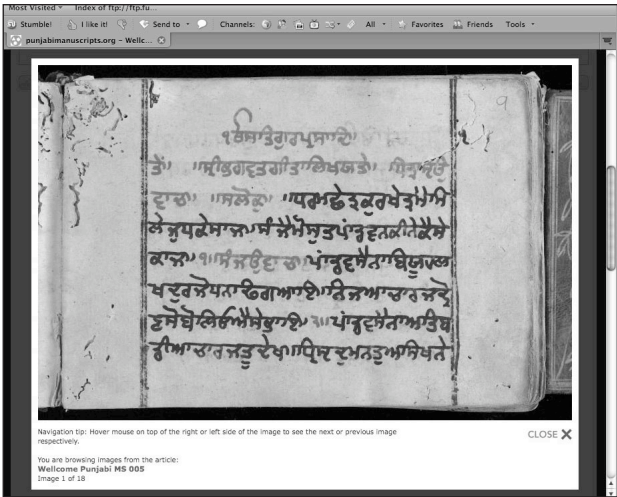 Most Visited
Index of ftp://ftp.fu...
Stumble! I like it! Send to Channels: All Favorites Friends Tools
punjabimanuscripts.org – Wellc...
ੴਸਤਿਗੁਰਪ੍ਰਸਾਦਿ॥
॥ਸ੍ਰੀਭਗਵਤਗੀਤਾਲਿਖਯਤੇ॥
ਵਾਚ॥ ॥ਸਲੋਕੁ॥ ॥ਧਰਮਛੇਤ੍ਰਕੁਰਖੇਤ੍ਰਮੈਮਿ
ਲੇਜੁਧਕੇਸਾਜ॥ਸੰਜੈਮੋਸੁਤਪਾਂਡਵਨਕੀਨੇਕੈਸੇ
ਕਾਜ॥੧॥ਸੰਜਉਵਾਚ॥ਪਾਂਡਵਸੈਨਾਬਿਯੂਹਲ
ਖਦੁਰਜੋਧਨਾਢਿਗਆਇ॥ਨਿਜਆਚਾਰਜਦ੍ਰੋ
ਣਸੋਬੋਲਿਓਐਸੇਭਾਇ॥੨॥ਪਾਂਡਵਸੈਨਾਅਤਿਬ
ਡੀਆਚਾਰਜਤੂਦੇਖ॥
Navigation tip: Hover mouse on top of the right or left side of the image to see the next or previous image
respectively.
CLOSE X
You are browsing images from the article:
Wellcome Punjabi MS 005
Image 1 of 18